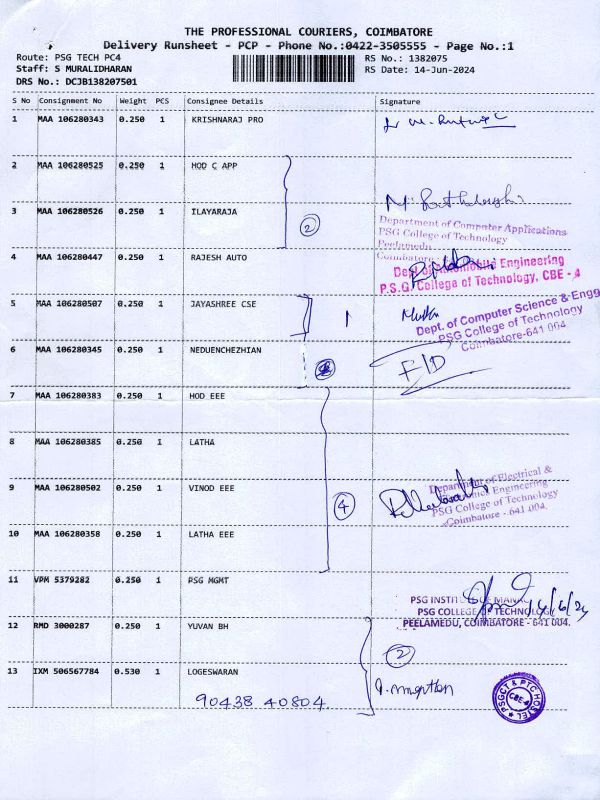 THE PROFESSIONAL COURIERS, COIMBATORE
Delivery Runsheet - PCP - Phone No.:0422-3505555 - Page No.:1
Route: PSG TECH PC4 RS No.: 1382075
Staff: S MURALIDHARAN RS Date: 14-Jun-2024
DRS No.: DCJB138207501
S No Consignment No Weight PCS Consignee Details Signature
1 MAA 106280343 0.250 1 KRISHNARAJ PRO
2 MAA 106280525 0.250 1 HOD C APP
3 MAA 106280526 0.250 1 ILAYARAJA
2
Department of Computer Applications
PSG College of Technology
Peelamedu
Coimbatore
4 MAA 106280447 0.250 1 RAJESH AUTO
Dept of Automobile Engineering
P.S.G. College of Technology, CBE - 4
5 MAA 106280507 0.250 1 JAYASHREE CSE
1
Dept. of Computer Science & Engg
PSG College of Technology
Coimbatore-641 004.
6 MAA 106280345 0.250 1 NEDUENCHEZHIAN
F/D
7 MAA 106280383 0.250 1 HOD EEE
8 MAA 106280385 0.250 1 LATHA
9 MAA 106280502 0.250 1 VINOD EEE
4
Department of Electrical &
Engineering
PSG College of Technology
Coimbatore - 641 004.
10 MAA 106280358 0.250 1 LATHA EEE
11 VPM 5379282 0.250 1 PSG MGMT
14/6/24
PSG COLLEGE OF TECHNOLOGY
PEELAMEDU, COIMBATORE - 641 004.
12 RMD 3000287 0.250 1 YUVAN BH
2
13 IXM 506567784 0.530 1 LOGESWARAN
90438 40804
PSGCT & PTC HOSTEL
CBE-4